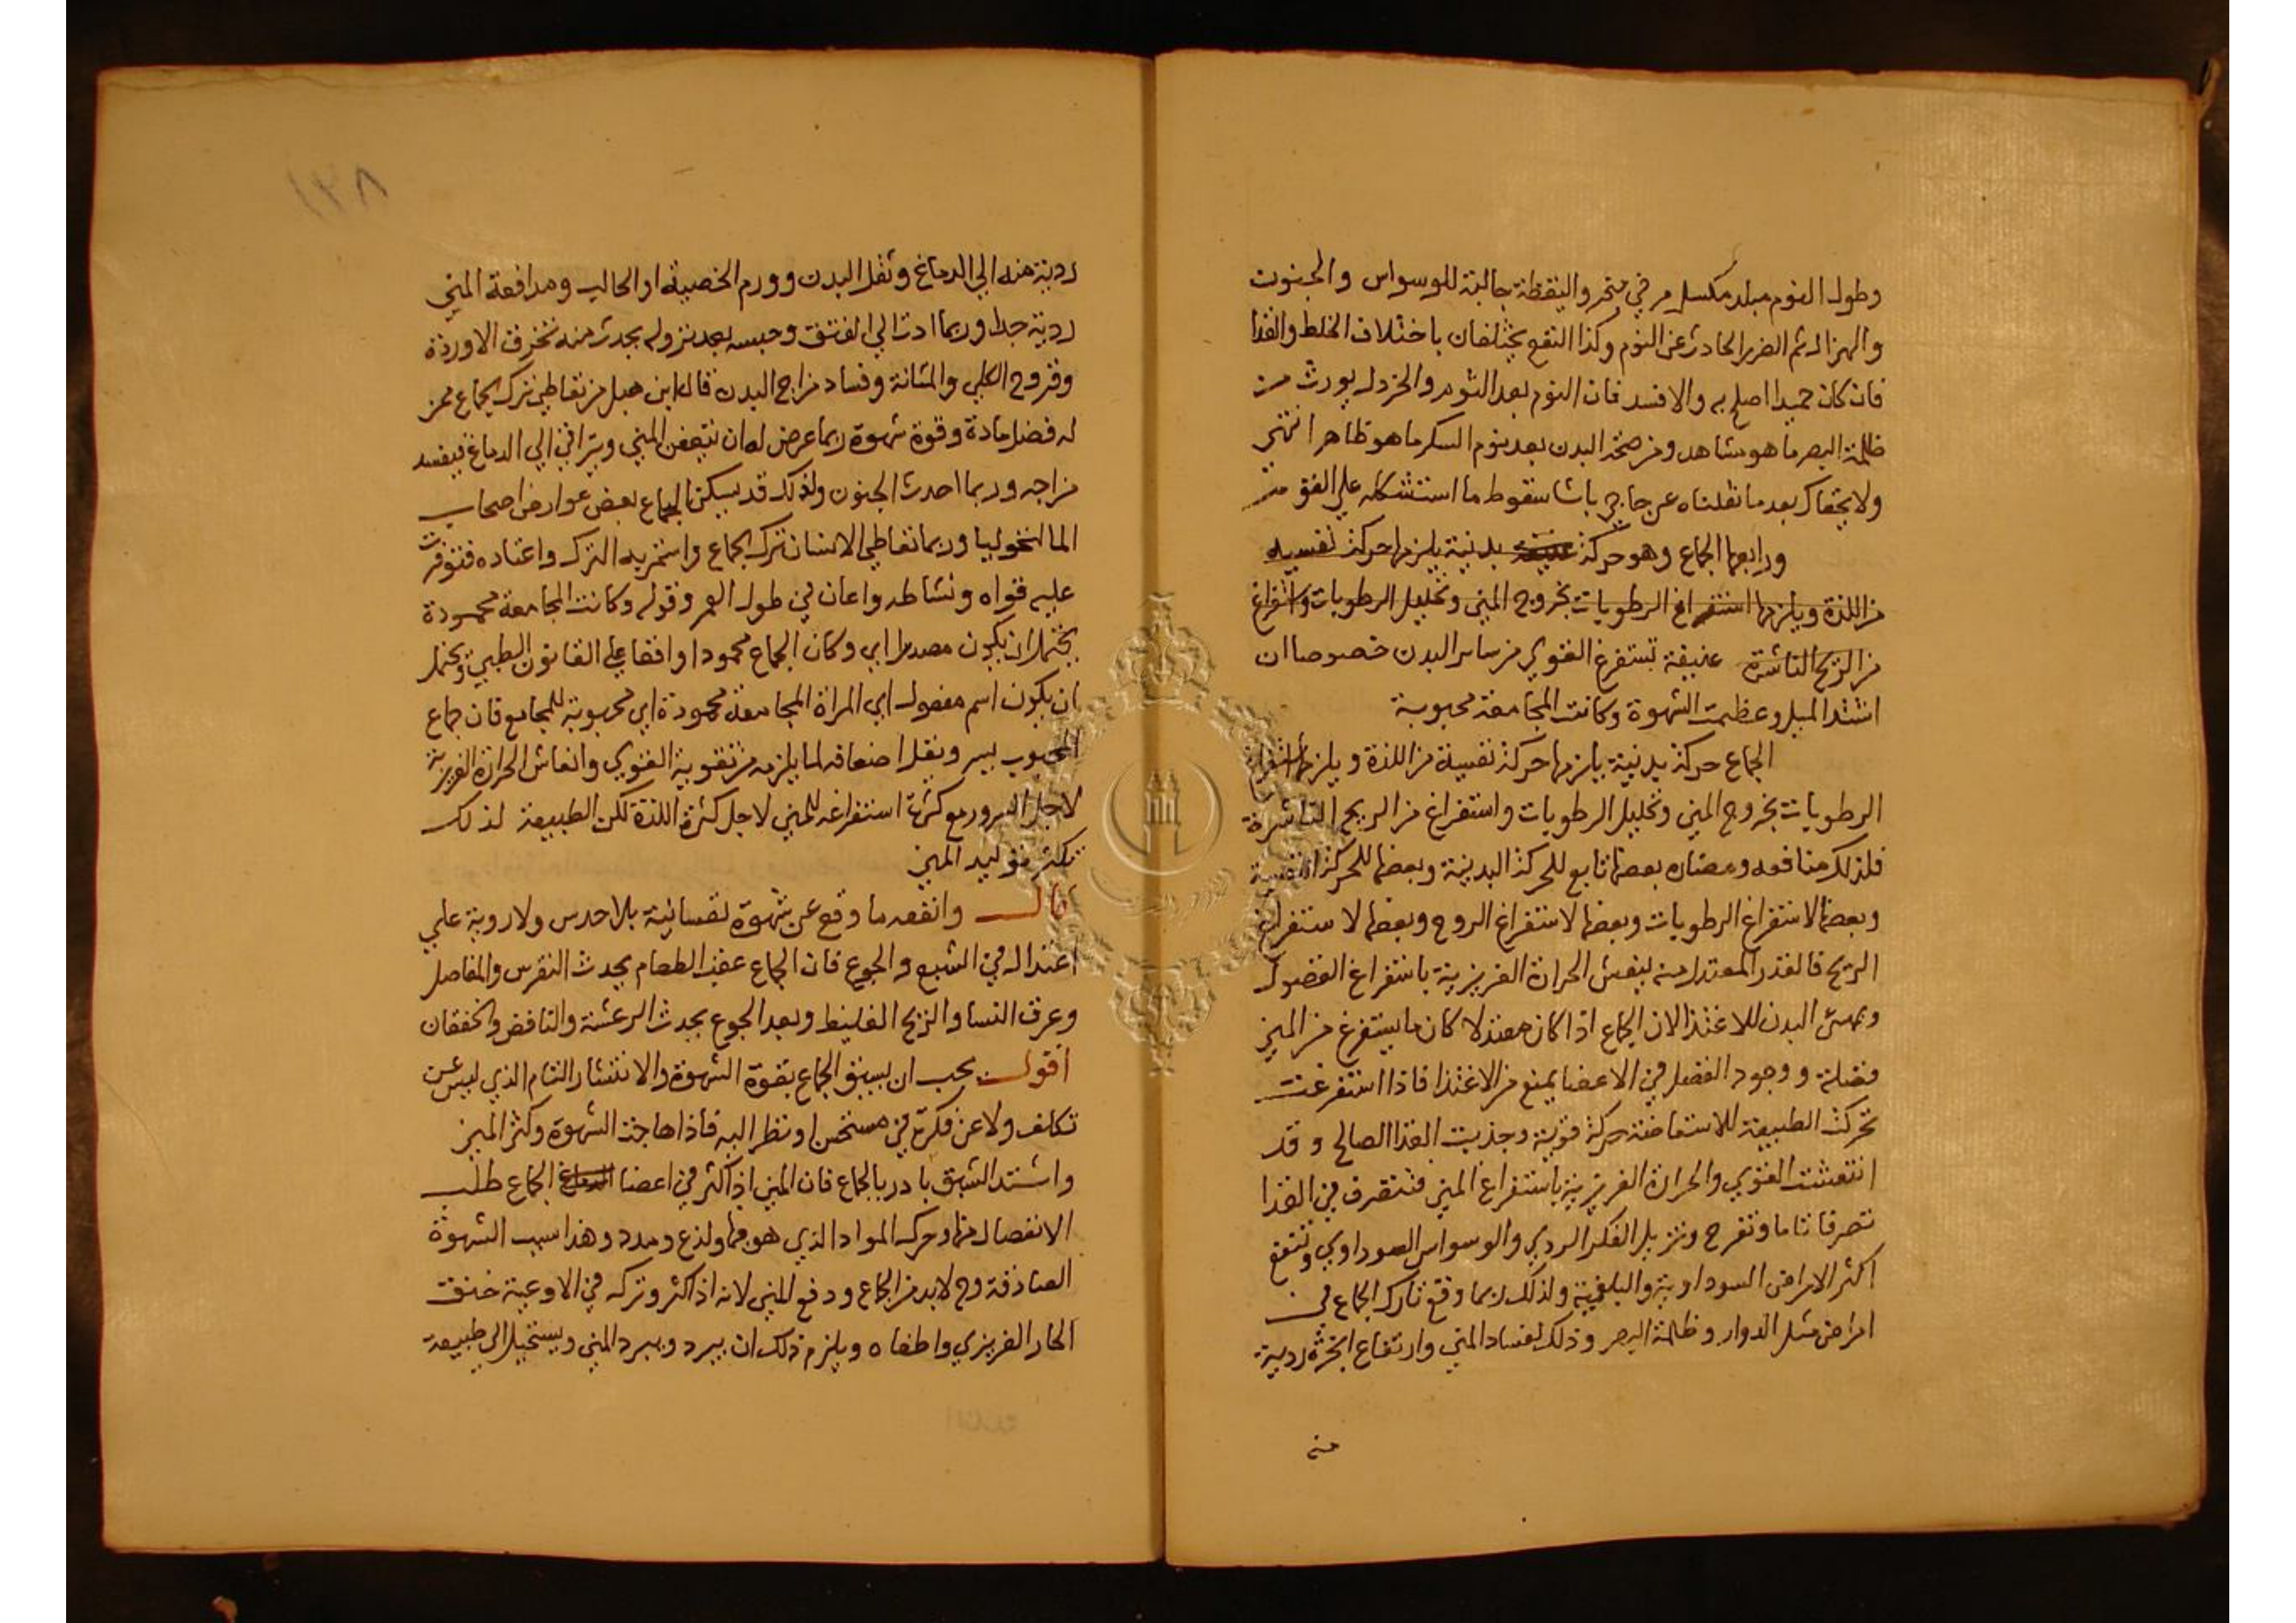 وطول النوم مبلد مكسل مرخي مبخر واليقظة جالبة للوسواس والجنون
والهزال ثم الضرر الحادث عن النوم وكذا النفع يختلفان باختلاف الخلط والغذا
فان كان جيدا اصلح به والا فسد فان النوم بعد الثوم والخردل يورث من
ظلمة البصر ما هو مشاهد ومن صحة البدن بعد نوم السكر ما هو ظاهر انتهى
ولا يخفاك بعد ما نقلناه عن حاجي باشا سقوط ما استشكله علي القوم
ورابعها الجماع وهو حركة عنيفة بدنية يلزمها حركة نفسية
من اللذة ويلزمها استفراغ الرطوبات بخروج المني وتحليل الرطوبات واستفراغ
من الريح الناشرة عنيفة تستفرغ القوي من ساير البدن خصوصا ان
اشتد الميل وعظمت الشهوة وكانت المجامعة محبوبة
الجماع حركة بدنية يلزمها حركة نفسية من اللذة ويلزمها استفراغ
الرطوبات بخروج المني وتحليل الرطوبات واستفراغ من الريح الناشرة
فلذلك منافعه ومضاره بعضها تابع للحركة البدنية وبعضها للحركة النفسية
وبعضها لاستفراغ الرطوبات وبعضها لاستفراغ الروح وبعضها لاستفراغ
الريح فالقدر المعتدل منه ينعش الحرارة الغريزية باستفراغ الفضول
ويهيئ البدن للاغتذا لان الجماع اذا كان معتدلا كان ما يستفرغ من المني
فضلة ووجود الفضل في الاعضا يمنع من الاغتذا فاذا استفرغت
تحركت الطبيعة للاستعاضة حركة قوية وجذبت الغذا الصالح وقد
انتعشت القوي والحرارة الغريزية باستفراغ المني فتتصرف في الغذا
تصرفا تاما وتفرح وتزيل الفكر الردي والوسواس السوداوي وتنفع
اكثر الامراض السوداوية والبلغمية ولذلك ربما وقع تارك الجماع في
امراض مثل الدوار وظلمة البصر وذلك لفساد المني وارتفاع ابخرة ردية
منه
١٣٨
ردية منه الي الدماغ وثقل البدن وورم الخصية او الحالب ومدافعة المني
ردية جدا وربما ادت الي الفتق وحبسه بعد نزوله يحدث منه تخرق الاوردة
وقروح الكلي والمثانة وفساد مزاج البدن قال ابن هبل من تعاطي ترك الجماع ممن
له فضل مادة وقوة شهوة ربما عرض له ان يتعفن المني ويتراقي الي الدماغ فيفسد
مزاجه وربما احدث الجنون ولذلك قد يسكن الجماع بعض عوارض اصحاب
المالنخوليا وربما تعاطي الانسان ترك الجماع واستمر به الترك واعتاده فتوفرت
عليه قواه ونشاطه واعان في طول العمر وقوله وكانت المجامعة محمودة
يحتمل ان يكون مصدرا اي وكان الجماع محمودا وافقا علي القانون الطبي ويحتمل
ان يكون اسم مفعول اي المراة المجامعة محمودة اي محبوبة للمجامع فان جماع
المحبوب يسر ويقل اضعافه لما يلزمه من تقوية القوي وانعاش الحرارة الغريزية
لاجل السرور مع كثرة استفراغه للمني لاجل كثرة اللذة لكن الطبيعة لذلك
تكثر توليد المني
قال وانفعه ما وقع عن شهوة نفسانية بلا حدس ولا روية علي
اعتدال في الشبع والجوع فان الجماع عقب الطعام يحدث النقرس والمفاصل
وعرق النسا والريح الغليظ وبعد الجوع يحدث الرعشة والنافض والخفقان
اقول يجب ان يسبق الجماع بقوة الشهوة والانتشار التام الذي ليس عن
تكلف ولا عن فكرة في مستحسن او نظر اليه فاذا هاجت الشهوة وكثر المني
واشتد الشبق بادر بالجماع فان المني اذا كثر في اعضا الجماع طلب
الانفصال منها وحرك المواد الذي هو فيها ولذع ومدد وهذا سبب الشهوة
الصادقة وح لابد من الجماع ودفع المني لانه اذا كثر وتركه في الاوعية خنق
الحار الغريزي واطفاه ويلزم ذلك ان يبرد ويبرد المني ويستحيل الي طبيعة